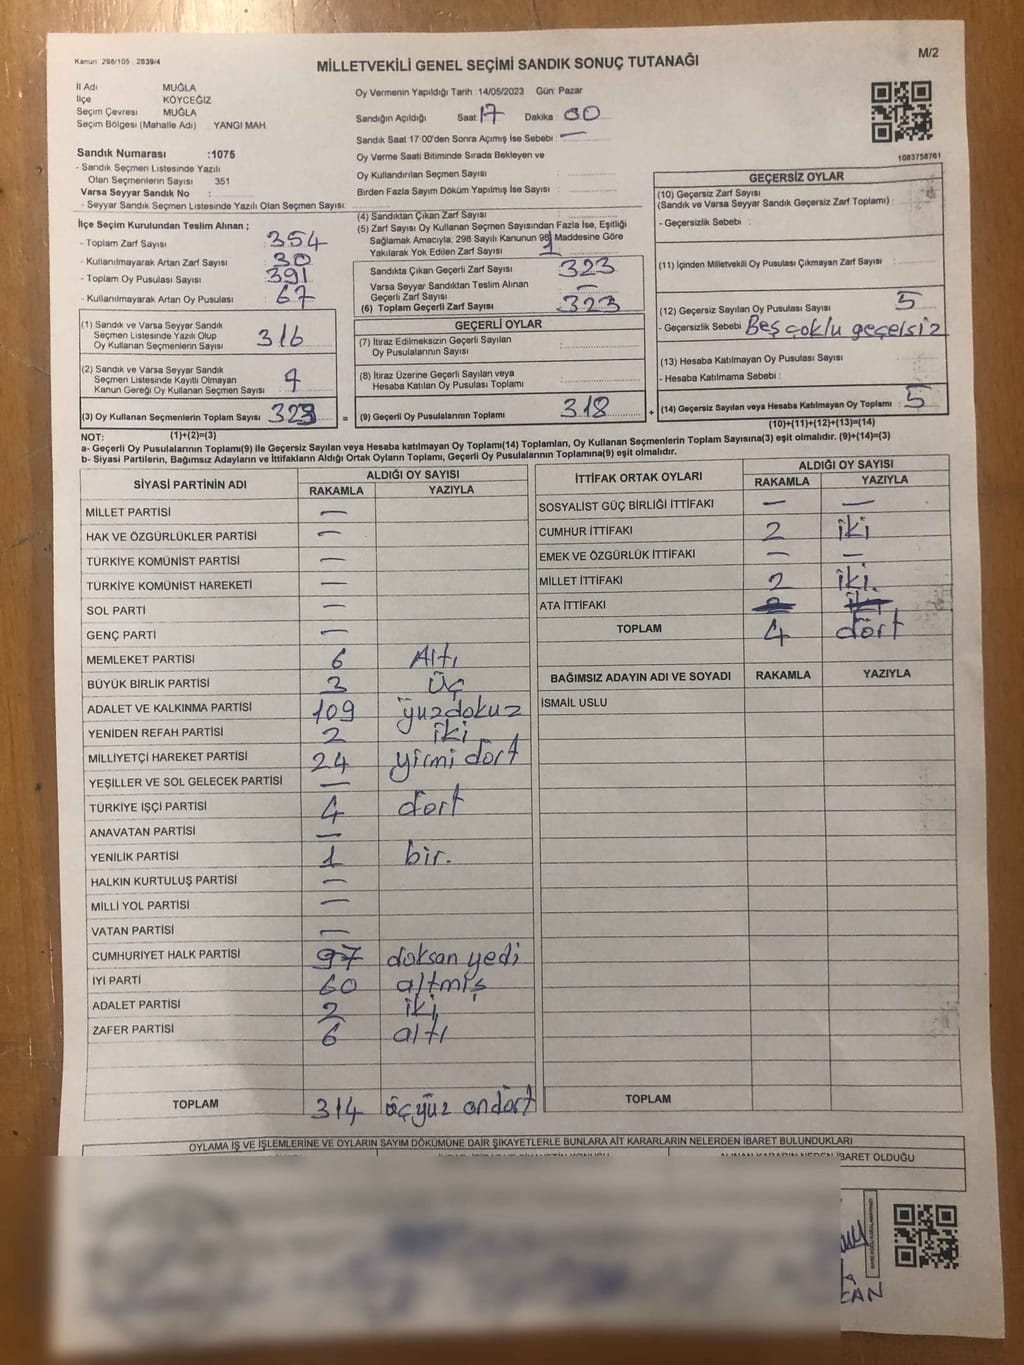 Kanun: 298/105 2839/4
M/2
MİLLETVEKİLİ GENEL SEÇİMİ SANDIK SONUÇ TUTANAĞI
İl Adı MUĞLA
İlçe KÖYCEĞİZ
Seçim Çevresi MUĞLA
Seçim Bölgesi (Mahalle Adı) YANGI MAH.
Sandık Numarası :1075
- Sandık Seçmen Listesinde Yazılı
Olan Seçmenlerin Sayısı : 351
Varsa Seyyar Sandık No :
- Seyyar Sandık Seçmen Listesinde Yazılı Olan Seçmen Sayısı:
Oy Vermenin Yapıldığı Tarih : 14/05/2023 Gün: Pazar
Sandığın Açıldığı Saat 17 Dakika : 00
Sandık Saat 17:00'den Sonra Açımış İse Sebebi : —
Oy Verme Saati Bitiminde Sırada Bekleyen ve
Oy Kullandırılan Seçmen Sayısı :
Birden Fazla Sayım Döküm Yapılmış İse Sayısı :
1083758761
İlçe Seçim Kurulundan Teslim Alınan ;
- Toplam Zarf Sayısı : 354
- Kullanılmayarak Artan Zarf Sayısı : 30
- Toplam Oy Pusulası Sayısı : 391
- Kullanılmayarak Artan Oy Pusulası : 67
(1) Sandık ve Varsa Seyyar Sandık
Seçmen Listesinde Yazılı Olup
Oy Kullanan Seçmenlerin Sayısı : 316
(2) Sandık ve Varsa Seyyar Sandık
Seçmen Listesinde Kayıtlı Olmayan
Kanun Gereği Oy Kullanan Seçmen Sayısı : 7
(3) Oy Kullanan Seçmenlerin Toplam Sayısı : 323 =
(1)+(2)=(3)
(4) Sandıktan Çıkan Zarf Sayısı :
(5) Zarf Sayısı Oy Kullanan Seçmen Sayısından Fazla İse, Eşitliği
Sağlamak Amacıyla, 298 Sayılı Kanunun 98. Maddesine Göre
Yakılarak Yok Edilen Zarf Sayısı : 1
Sandıkta Çıkan Geçerli Zarf Sayısı : 323
Varsa Seyyar Sandıktan Teslim Alınan
Geçerli Zarf Sayısı : —
(6) Toplam Geçerli Zarf Sayısı : 323
GEÇERLİ OYLAR
(7) İtiraz Edilmeksizin Geçerli Sayılan
Oy Pusulalarının Sayısı :
(8) İtiraz Üzerine Geçerli Sayılan veya
Hesaba Katılan Oy Pusulası Toplamı :
(9) Geçerli Oy Pusulalarının Toplamı : 318 +
GEÇERSİZ OYLAR
(10) Geçersiz Zarf Sayısı
(Sandık ve Varsa Seyyar Sandık Geçersiz Zarf Toplamı) :
- Geçersizlik Sebebi :
(11) İçinden Milletvekili Oy Pusulası Çıkmayan Zarf Sayısı :
(12) Geçersiz Sayılan Oy Pusulası Sayısı : 5
- Geçersizlik Sebebi : Beş çoklu geçelsiz
(13) Hesaba Katılmayan Oy Pusulası Sayısı :
- Hesaba Katılmama Sebebi :
(14) Geçersiz Sayılan veya Hesaba Katılmayan Oy Toplamı : 5
(10)+(11)+(12)+(13)=(14)
NOT:
a- Geçerli Oy Pusulalarının Toplamı(9) ile Geçersiz Sayılan veya Hesaba katılmayan Oy Toplamı(14) Toplamları, Oy Kullanan Seçmenlerin Toplam Sayısına(3) eşit olmalıdır. (9)+(14)=(3)
b- Siyasi Partilerin, Bağımsız Adayların ve İttifakların Aldığı Ortak Oyların Toplamı, Geçerli Oy Pusulalarının Toplamına(9) eşit olmalıdır.
SİYASİ PARTİNİN ADI ALDIĞI OY SAYISI
RAKAMLA YAZIYLA
MİLLET PARTİSİ —
HAK VE ÖZGÜRLÜKLER PARTİSİ —
TÜRKİYE KOMÜNİST PARTİSİ —
TÜRKİYE KOMÜNİST HAREKETİ —
SOL PARTİ —
GENÇ PARTİ —
MEMLEKET PARTİSİ 6 Altı
BÜYÜK BİRLİK PARTİSİ 3 Üç
ADALET VE KALKINMA PARTİSİ 109 yüzdokuz
YENİDEN REFAH PARTİSİ 2 iki
MİLLİYETÇİ HAREKET PARTİSİ 24 yirmi dört
YEŞİLLER VE SOL GELECEK PARTİSİ —
TÜRKİYE İŞÇİ PARTİSİ 4 dört
ANAVATAN PARTİSİ —
YENİLİK PARTİSİ 1 bir.
HALKIN KURTULUŞ PARTİSİ —
MİLLİ YOL PARTİSİ —
VATAN PARTİSİ —
CUMHURİYET HALK PARTİSİ 97 doksan yedi
İYİ PARTİ 60 altmış
ADALET PARTİSİ 2 iki
ZAFER PARTİSİ 6 altı
TOPLAM 314 üçyüz ondört
İTTİFAK ORTAK OYLARI ALDIĞI OY SAYISI
RAKAMLA YAZIYLA
SOSYALİST GÜÇ BİRLİĞİ İTTİFAKI — —
CUMHUR İTTİFAKI 2 iki
EMEK VE ÖZGÜRLÜK İTTİFAKI — —
MİLLET İTTİFAKI 2 iki.
ATA İTTİFAKI 2 iki
TOPLAM 4 dört
BAĞIMSIZ ADAYIN ADI VE SOYADI RAKAMLA YAZIYLA
İSMAİL USLU
TOPLAM
OYLAMA İŞ VE İŞLEMLERİNE VE OYLARIN SAYIM DÖKÜMÜNE DAİR ŞİKAYETLERLE BUNLARA AİT KARARLARIN NELERDEN İBARET BULUNDUKLARI
ALINAN KARARIN NEDEN İBARET OLDUĞU
CAN